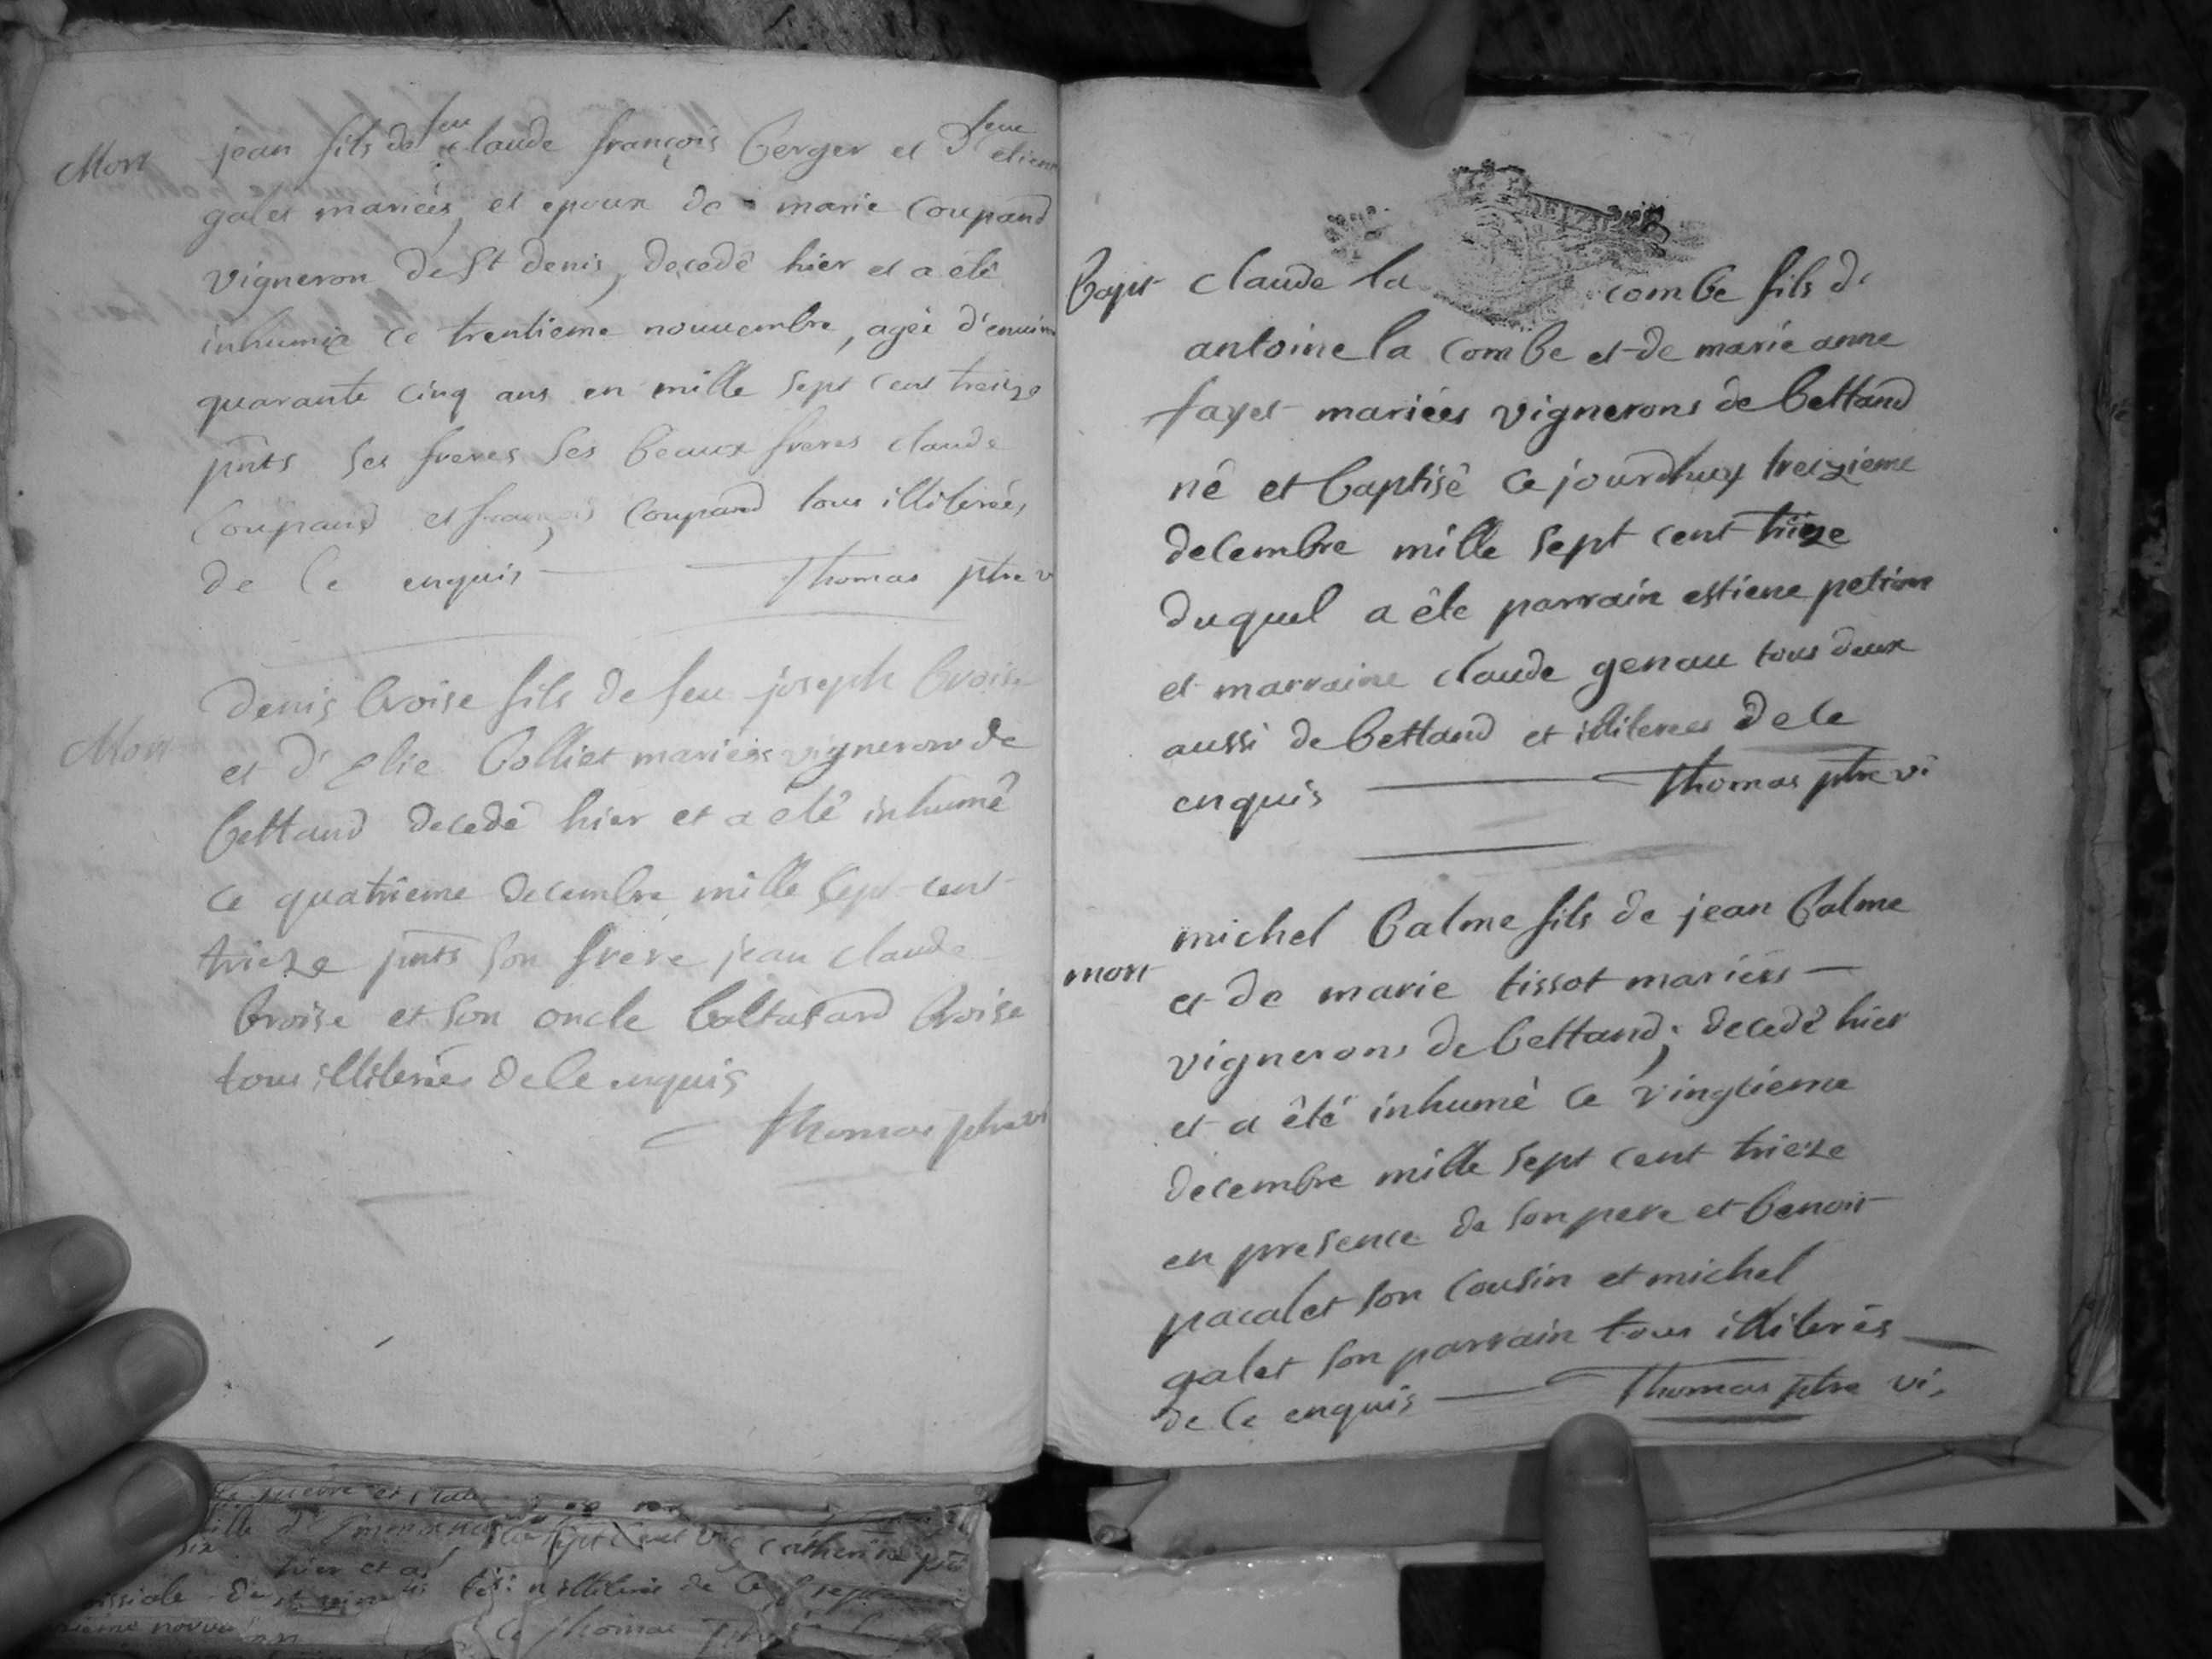 Mort
jean fils de feu claude françois berger et d' feue etienn
galet mariées, et epoux de marie coupand
vigneron de st denis, decedé hier et a été
inhumé ce trentieme nouuembre, agé d'enuiron
quarante cinq ans en mille sept cent treize
pnts ses freres ses beaux freres claude
coupand et françois coupand tous illiterés,
de ce enquis Thomas ptre v
Mort
denis broise fils de feu joseph broise
et d'elie bolliet mariées vignerons de
bettand decedé hier et a eté inhumé
ce quatrieme decembre mille sept cent
trieze pnts son frere jean claude
broise et son oncle baltasard broise
tous illiterés de ce enquis
Thomas ptre vi
bapt
claude la combe fils d'
antoine la combe et de marie anne
fayet mariées vignerons de bettand
né et baptisé ce jourdhuy treizieme
decembre mille sept cent trieze
duquel a été parrain estiene
et marraine claude genau tous deux
aussi de bettand et illiterees de ce
enquis Thomas ptre vi
mort
michel balme fils de jean balme
et de marie tissot mariées
vignerons de bettand; decedé hier
et a été inhumé ce vingtieme
decembre mille sept cent trieze
en presence de son pere et benoit
pacalet son cousin et michel
galet son parrain tous illiterés
de ce enquis Thomas ptre vi.